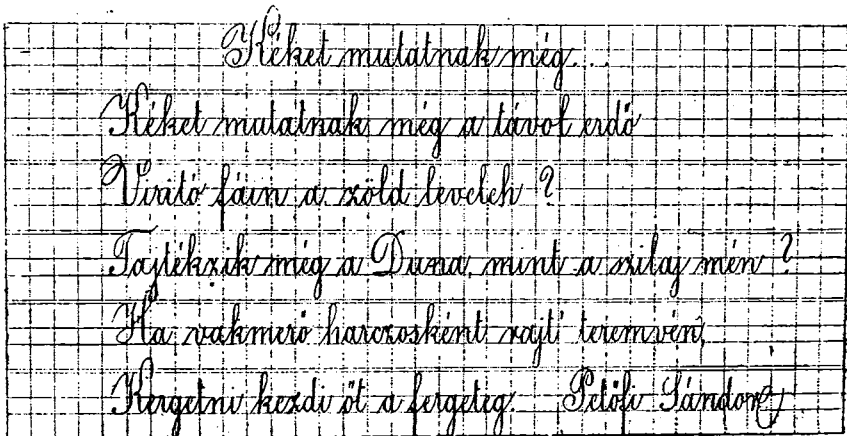 Kéket mutatnak még...
Kéket mutatnak még a távol erdő
Viritó fáin a zöld levelek ?
Tajtékzik még a Duna, mint a szilaj mén ?
Ha vakmerő harczosként rajt' teremvén,
Kergetni kezdi őt a fergeteg. Petőfi Sándor